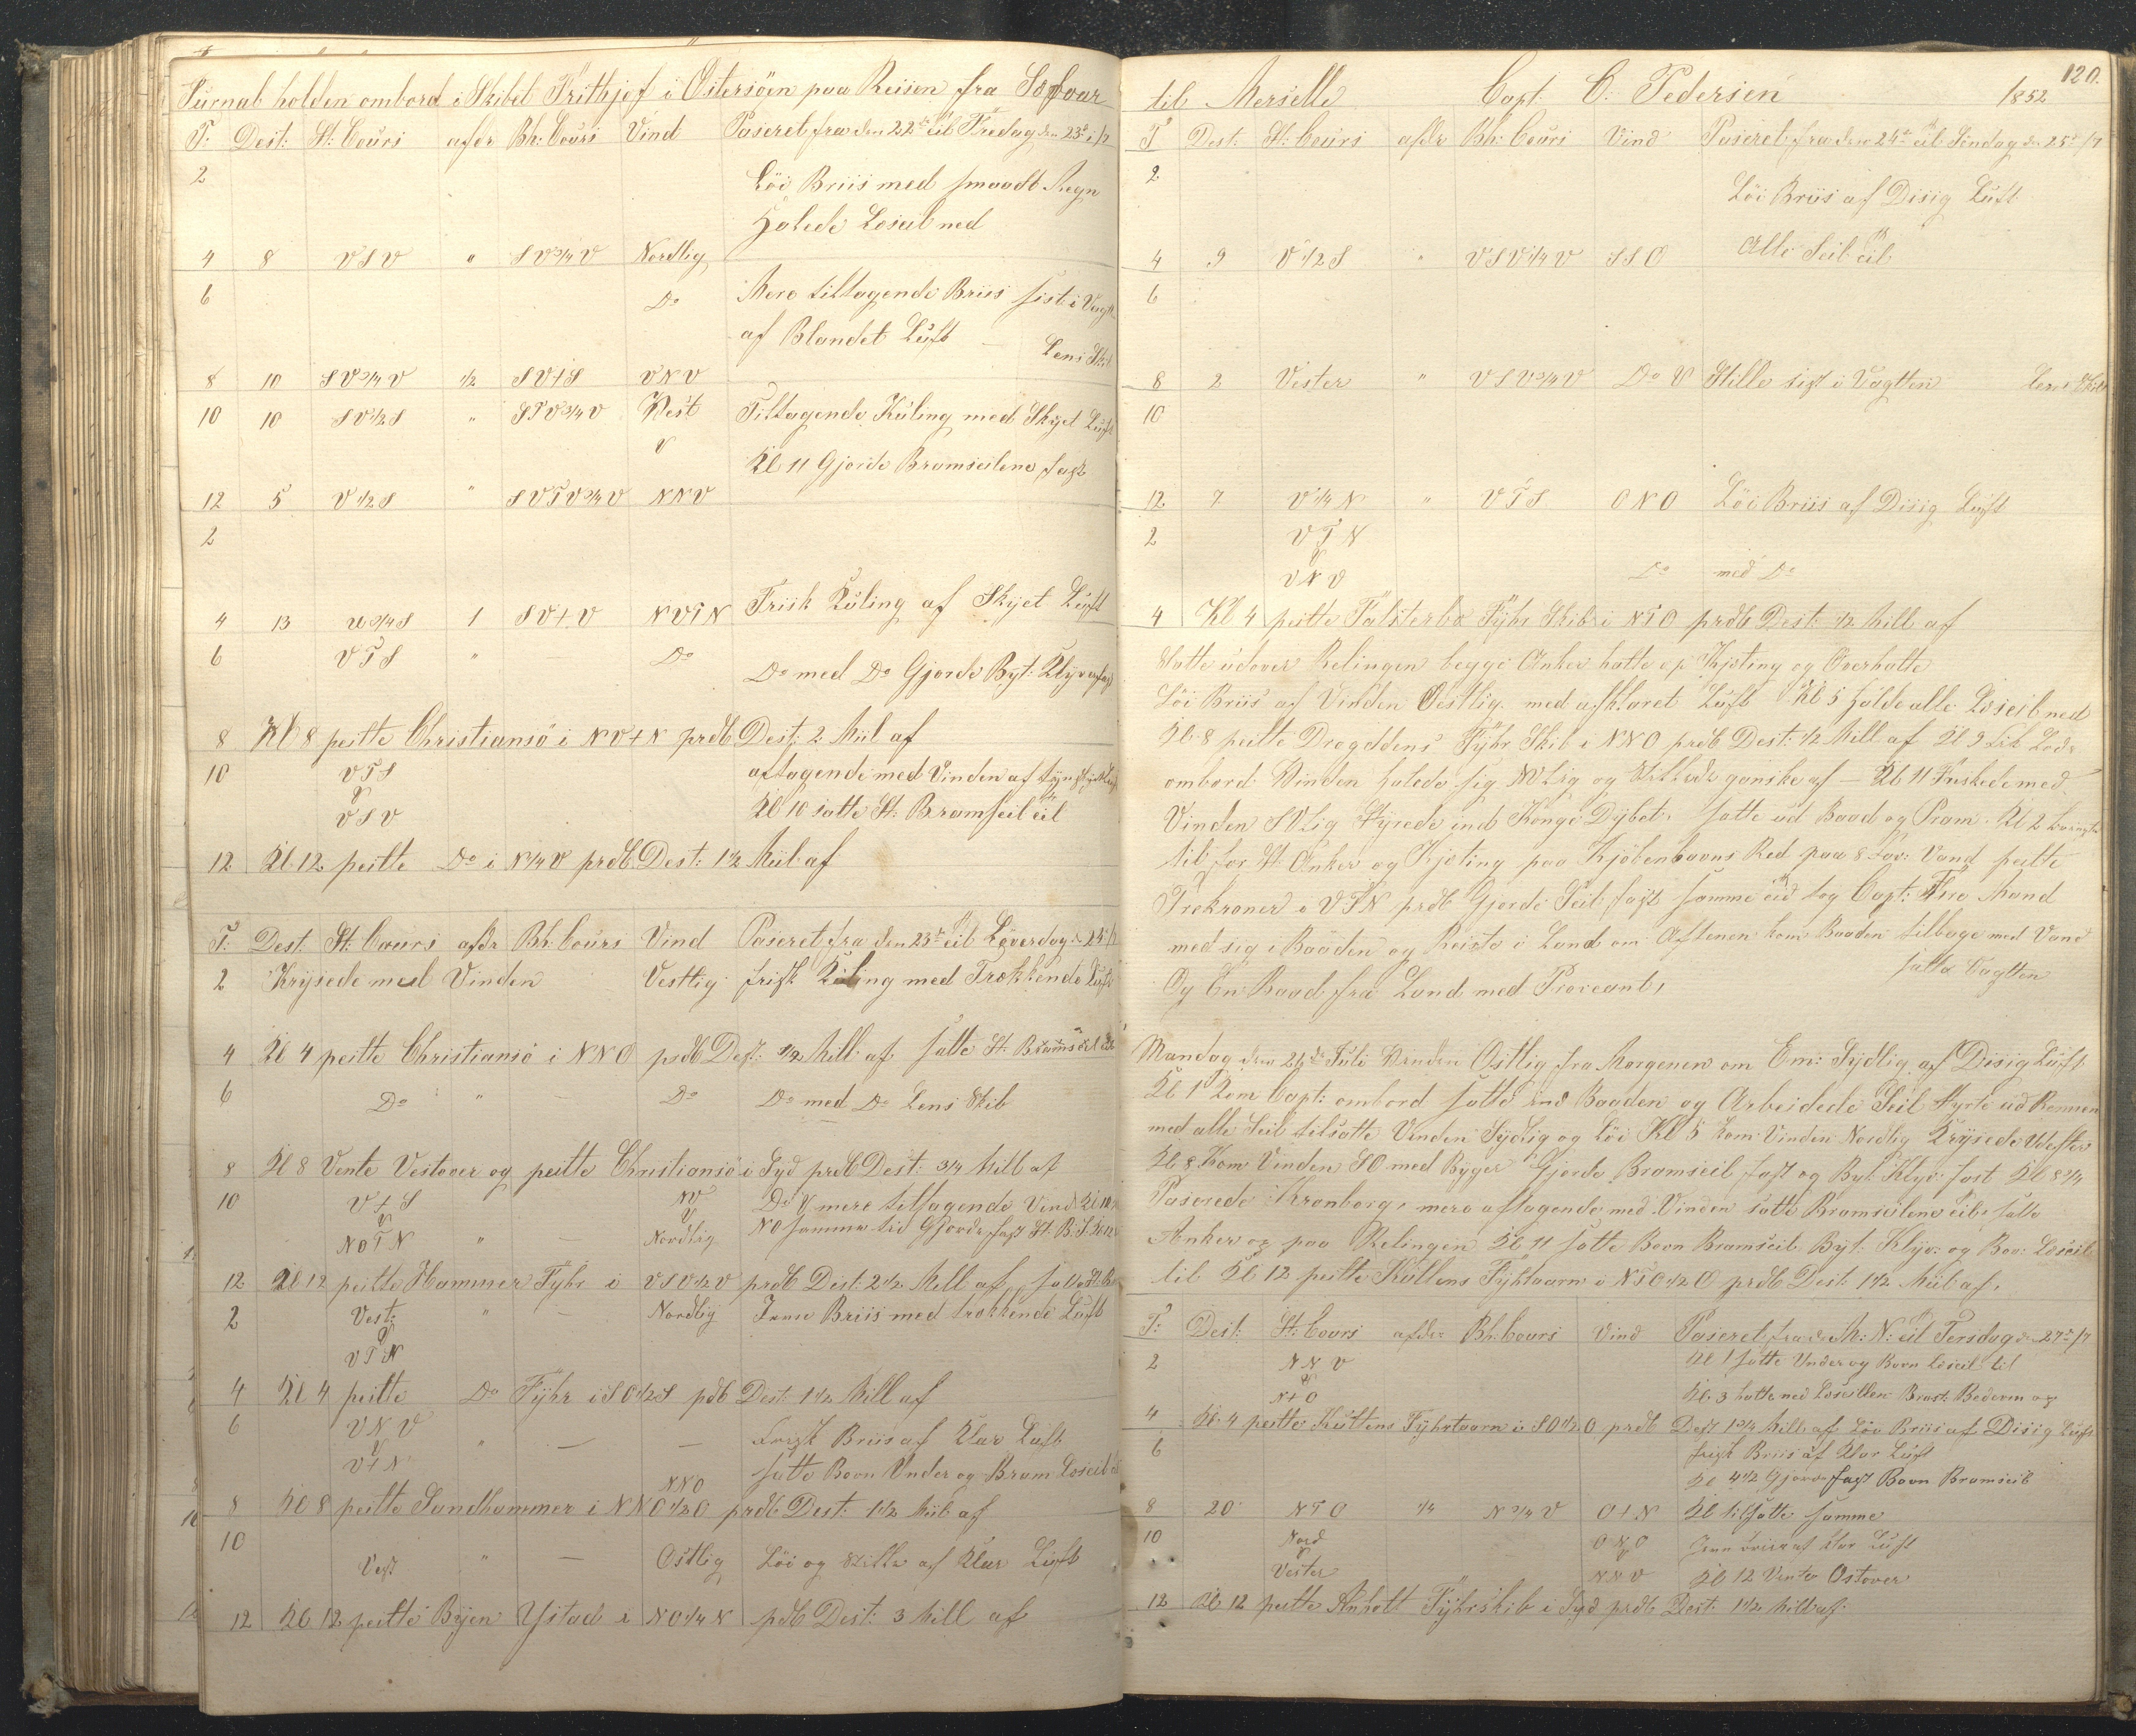 Jurnal holden ombord i Skibet Frithjof i Östersöen paa Reisen fra Soefvar
T: Dest: St: Cours afdr Bh: Cours Vind Paseret fra den 22de til Fredag den 23de /7
2 Löi Briis med smaadt Regn
Halede Loseil ned
4 8 VSV " SV3/4V Nordlig
6 Do Mere tiltagende Briis sist i Vagten
af Blandet Luft — Lens Skib
8 10 SV3/4V 1/2 SV+S VNV
10 10 SV1/2S " STV3/4V Vest Tiltagende Kuling med Skyet Luft
V Kl 11 Gjorde Bramseilene fast
12 5 V1/2S " SVTV3/4V NNV
2
Frisk Kuling af Skyet Luft
4 13 3/4S 1 SV+V NVTN
6 VTS " — Do Do med Do Gjorde Byt: Klyver fast
8 Kl 8 peilte Christiansö i NV+N prdb Dest: 2 Miil af
10 VTS aftagende med Vinden af
V
VSV Kl 10 satte St: Bramseil til
12 Kl 12 peilte Do i N1/4V prdb. Dest: 1 1/2 Miil af
T: Dest St: Cours afdr Bh: Cours Vind Paseret fra den 23de til Löverdag d: 24de /7
2 Krysede med Vinden Vestlig frisk Kuling med Trækkende Luft
4 Kl 4 peilte Christiansö i NNO prdb Dest: 1/2 Mill af satte St: Bramseil til
6 Do " — Do Do med Do Lens Skib
8 Kl 8 Vente Vestover og peilte Christiansö i Syd prdb Dest: 3/4 Mill af
10 V+S NV Do V mere tiltagende Vind Kl 10
V V
NOTN " — Nordlig NO samme tid Gjorde fast St: B: S:
12 Kl 12 peilte Hammer Fyhr i VSV1/2V prdb Dest: 2 1/2 Mill af, satte St: B
2 Vest: " — Nordlig Jevne Briis med trækkende Luft
V
VTN
4 Kl 4 peilte Do Fyhr i SO1/2S pdb Dest: 1 1/2 Mill af
6 VNV frisk Briis af Klar Luft
V " — —
V+N satte Bovn Under og Bram Loseil til
NNO
8 Kl 8 peilte Sandhammer i NNO1/2O prdb Dest: 1 1/2 Miil af
10
Vest " — Ostlig Löi og Stille af Klar Luft
12 Kl 12 peilte Byen Ystad i NO1/4N pdb Dest: 3 Mill af
120.
til Merselle Capt. C: Pedersen 1852
T Dest: St: Cours afdr Bh: Cours Vind Paseret fra den 24de til Söndag d: 25de /7
2 Löi Briis af Disig Luft
4 9 V1/2S " VSV1/4V SSO Alle Seil til
6
8 2 Vester " VSV3/4V Do V Stille sist i Vagten Lens Skib
10
12 7 V1/4N " VTS ONO Löi Briis af Disig Luft
2 VTN
V
VNV Do med Do
4 Kl 4 peilte Falsterbo Fyhr Skib i NTO prdb Dest: 1/2 Mill af
Satte udover Relingen begge Anker hatte op Kjæting og Overhalte
Löi Briis af Vinden Oestlig med afklaret Luft Kl 5 halde alle Loseil ned
Kl. 8 peilte Drogdens Fyhr Skib i NNO prdb Dest: 1/2 Mill af Kl 9 fik Lods
ombord Vinden halede sig NVlig og Stillede ganske af — Kl 11 Friskede med
Vinden SVlig Styrede ind Konge Dybet: satte ud Baad og Pram. Kl 2
til for St: Anker og Kjæting paa Kjöbenhavns Red paa 8 Fav: Vand peilte
Trekroner i VTN prdb Gjorde Seil fast samme tid tog Capt: Fire Mand
med sig i Baaden og Reiste i Land om Aftenen kom Baaden tilbage med Vand
Og En Baad fra Land med Proveant, satte Vagten
Mandag den 26de Juli Vinden Ostlig fra Morgenen om Em: Sydlig af Disig Luft
Kl 1 Kom Capt: ombord satte ind Baaden og Arbeidede Seil Styrte ud Rennen
med alle Seil tilsatte Vinden Sydlig og Löi Kl 5 kom Vinden Nordlig Krysede
Kl 8 Kom Vinden SO med Byger Gjorde Bramseil fast og Byt: Klyv: fast Kl 8 3/4
Paserede Kronborg, mere aftagende med Vinden satte Bramseilene til, satte
Anker op paa Relingen Kl 11 satte Bovn Bramseil Byt: Klyv: og Bov: Loseil
til Kl 12 peilte Kullens Fyhrtaarn i NTO1/2O prdb Dest: 1 1/2 Miil af,
T: Dest: St: Cours afdr: Bh: Cours Vind Paseret fra d: M: N: til Tersdag d: 27de /7
2 NNV Kl 1 satte Under og Bovn Loseil til
V
N+O Kl. 3 hatte ned Loseillene
4 Kl. 4 peilte Kullens Fyhrtaarn i SO1/2O prdb Dest 1 3/4 Mill af Löi Briis af Disig Luft
6 frisk Briis af Klar Luft
Kl 4 1/2 Gjorde fast Bovn Bramseil
8 20 NTO 1/4 N3/4V O+N Kl tilsatte samme
10 Nord ONO Jevn briis af Klar Luft
V V
Vester NNV Kl 12 Vente Ostover
12 Kl 12 peilte Anholt Fyhrskib i Syd prdb Dest: 1 1/2 Mill af